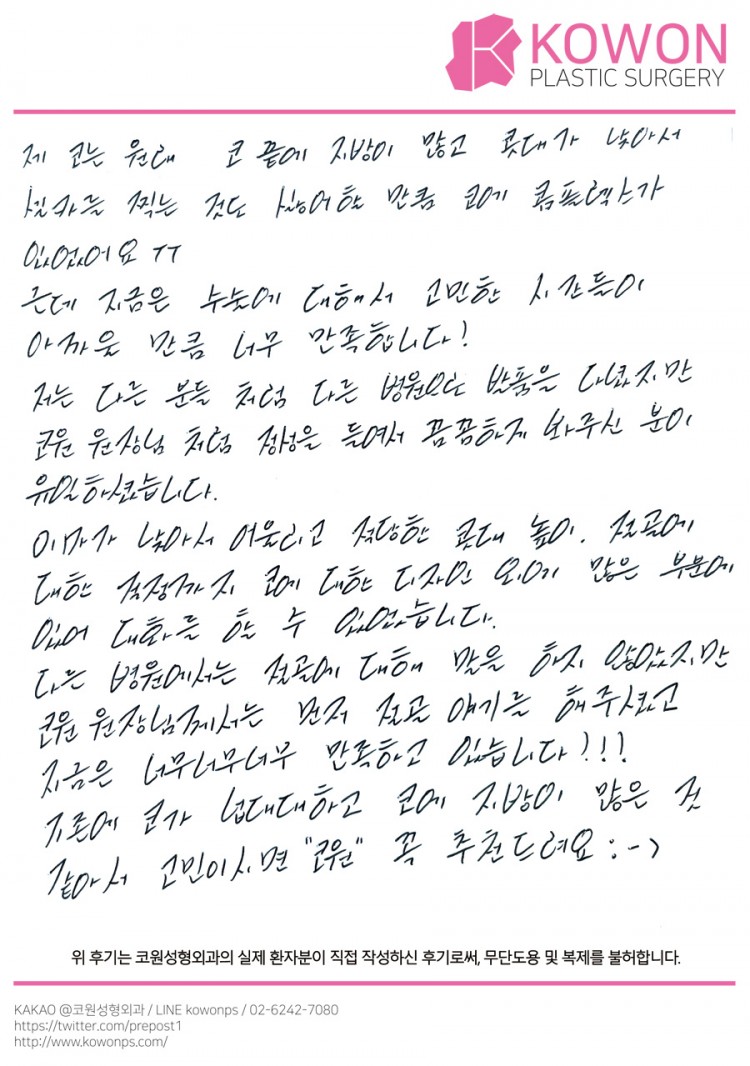 KOWON
PLASTIC SURGERY
제 코는 원래 코 끝에 지방이 많고 콧대가 낮아서
사진 찍는 것도 싫어할 만큼 코에 콤플렉스가
있었어요 ㅠㅠ
근데 지금은 수술에 대해서 고민한 시간들이
아까울 만큼 너무 만족합니다!
저는 다른 분들 처럼 다른 병원으로 발품을 다녔지만
코원 원장님 처럼 정성을 들여서 꼼꼼하게 봐주신 분이
유일하셨습니다.
이마가 낮아서 어울리고 적당한 콧대 높이. 절골에
대한 걱정까지 코에 대한 디자인 외에 많은 부분에
있어 대화를 할 수 있었습니다.
다른 병원에서는 절골에 대해 말을 하지 않았지만
코원 원장님께서는 먼저 절골 얘기를 해주셨고
지금은 너무너무너무 만족하고 있습니다!!!
코가 넙대대하고 코에 지방이 많은 것
같아서 고민이시면 "코원" 꼭 추천드려요 :->
위 후기는 코원성형외과의 실제 환자분이 직접 작성하신 후기로써, 무단도용 및 복제를 불허합니다.
KAKAO @코원성형외과 / LINE kowonps / 02-6242-7080
https://twitter.com/prepost1
http://www.kowonps.com/